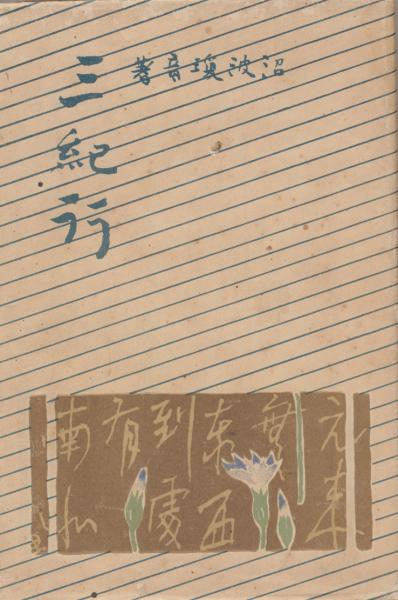 沼波瓊音著
三紀行
元来
無
東西
到處
有
南北